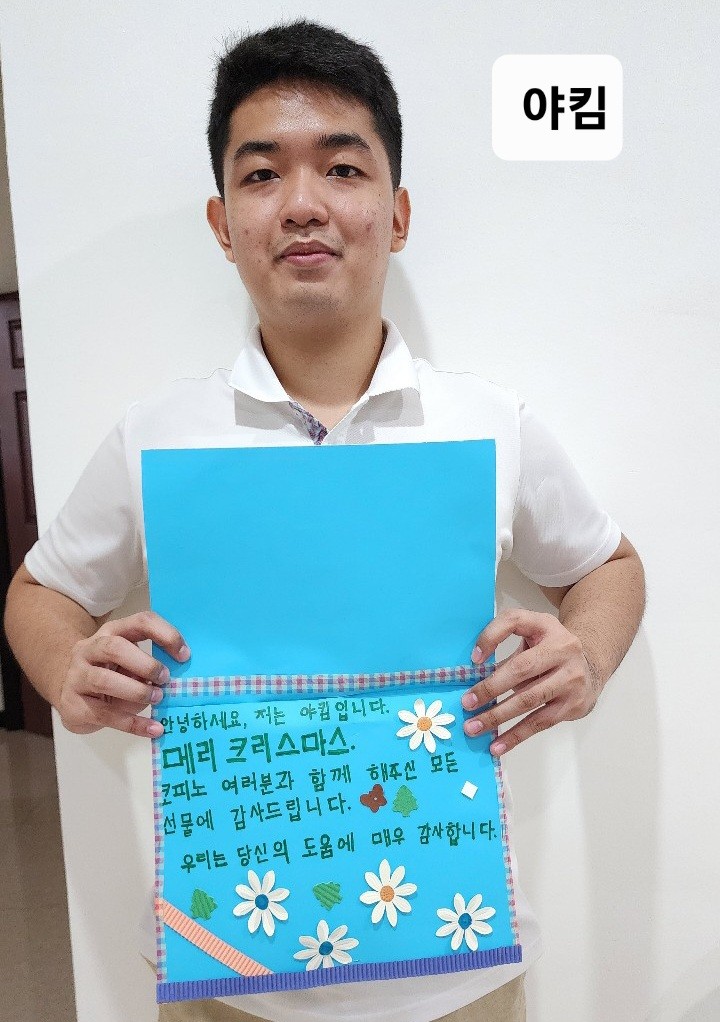 야킴
안녕하세요, 저는 야킴입니다.
메리 크리스마스.
코피노 여러분과 함께 해주신 모든
선물에 감사드립니다.
우리는 당신의 도움에 매우 감사합니다.